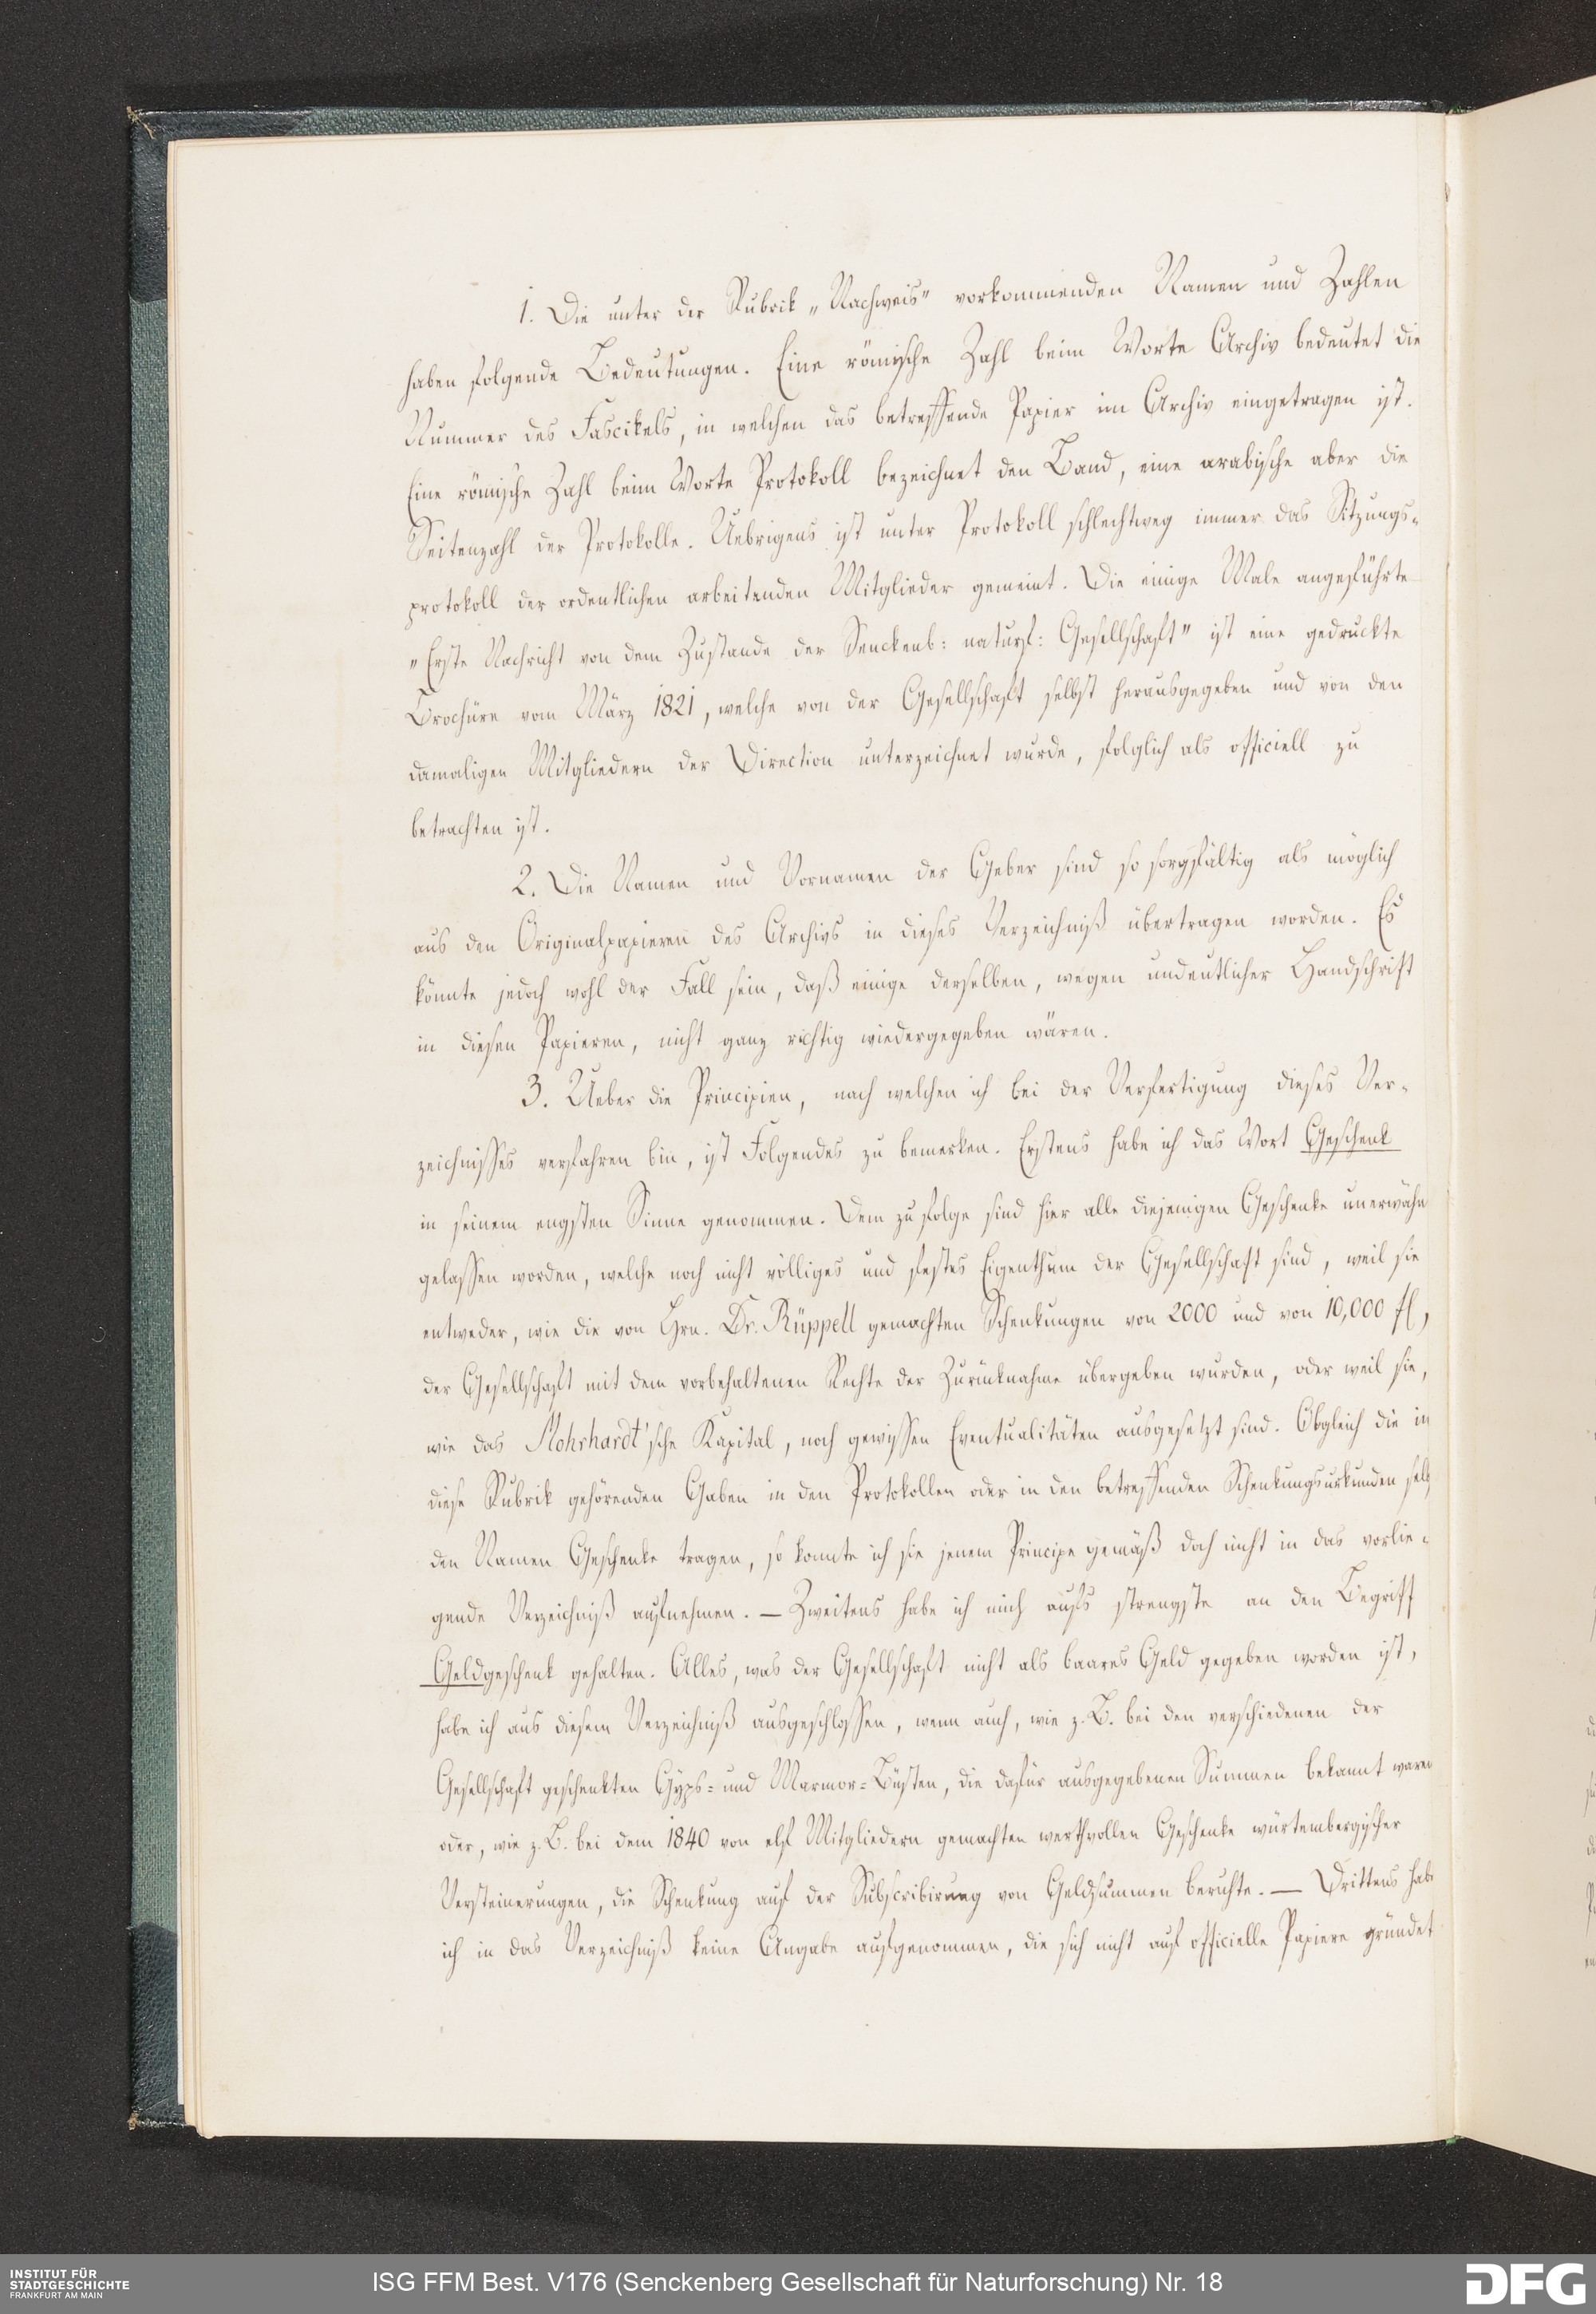 1. Die unter der Rubrik „Nachweis" vorkommenden Namen und Zahlen
haben folgende Bedeutungen. Eine römische Zahl beim Worte Archiv bedeutet die
Nummer des Fascikels, in welchen das betreffende Papier im Archiv eingetragen ist.
Eine römische Zahl beim Worte Protokoll bezeichnet den Band, eine arabische aber die
Seitenzahl der Protokolle. Uebrigens ist unter Protokoll schlechtweg immer das Sitzungs-
protokoll der ordentlichen arbeitenden Mitglieder gemeint. Die einige Male angeführte
„Erste Nachricht von dem Zustande der Senckenb: naturf: Gesellschaft" ist eine gedruckte
Brochüre vom März 1821, welche von der Gesellschaft selbst herausgegeben und von den
damaligen Mitgliedern der Direction unterzeichnet wurde, folglich als officiell zu
betrachten ist.
2. Die Namen und Vornamen der Geber sind so sorgfältig als möglich
aus den Originalpapieren des Archivs in dieses Verzeichniß übertragen worden. Es
könnte jedoch wohl der Fall sein, daß einige derselben, wegen undeutlicher Handschrift
in diesen Papieren, nicht ganz richtig wiedergegeben wären.
3. Ueber die Principien, nach welchen ich bei der Verfertigung dieses Ver-
zeichnisses verfahren bin, ist Folgendes zu bemerken. Erstens habe ich das Wort Geschenk
in seinem engsten Sinne genommen. Dem zu folge sind hier alle diejenigen Geschenke unerwähn
gelassen worden, welche noch nicht völliges und festes Eigenthum der Gesellschaft sind, weil sie
entweder, wie die von Hrn. Dr. Rüppell gemachten Schenkungen von 2000 und von 10,000 fl,
der Gesellschaft mit dem vorbehaltenen Rechte der Zurücknahme übergeben wurden, oder weil sie,
wie das Mohrhardt'sche Kapital, noch gewissen Eventualitäten ausgesetzt sind. Obgleich die in
diese Rubrik gehörenden Gaben in den Protokollen oder in den betreffenden Schenkungsurkunden selb
den Namen Geschenke tragen, so konnte ich sie jenem Principe gemäß doch nicht in das vorlie-
gende Verzeichniß aufnehmen. — Zweitens habe ich mich aufs strengste an den Begriff
Geldgeschenk gehalten. Alles, was der Gesellschaft nicht als baares Geld gegeben worden ist,
habe ich aus diesem Verzeichniß ausgeschlossen, wenn auch, wie z. B. bei den verschiedenen der
Gesellschaft geschenkten Gyps- und Marmor-Büsten, die dafür ausgegebenen Summen bekannt waren
oder, wie z. B. bei dem 1840 von elf Mitgliedern gemachten werthvollen Geschenke würtembergischer
Versteinerungen, die Schenkung auf der Subscribirung von Geldsummen beruhte. — Drittens habe
ich in das Verzeichniß keine Angabe aufgenommen, die sich nicht auf officielle Papiere gründet
INSTITUT FÜR
STADTGESCHICHTE
FRANKFURT AM MAIN
ISG FFM Best. V176 (Senckenberg Gesellschaft für Naturforschung) Nr. 18
DFG